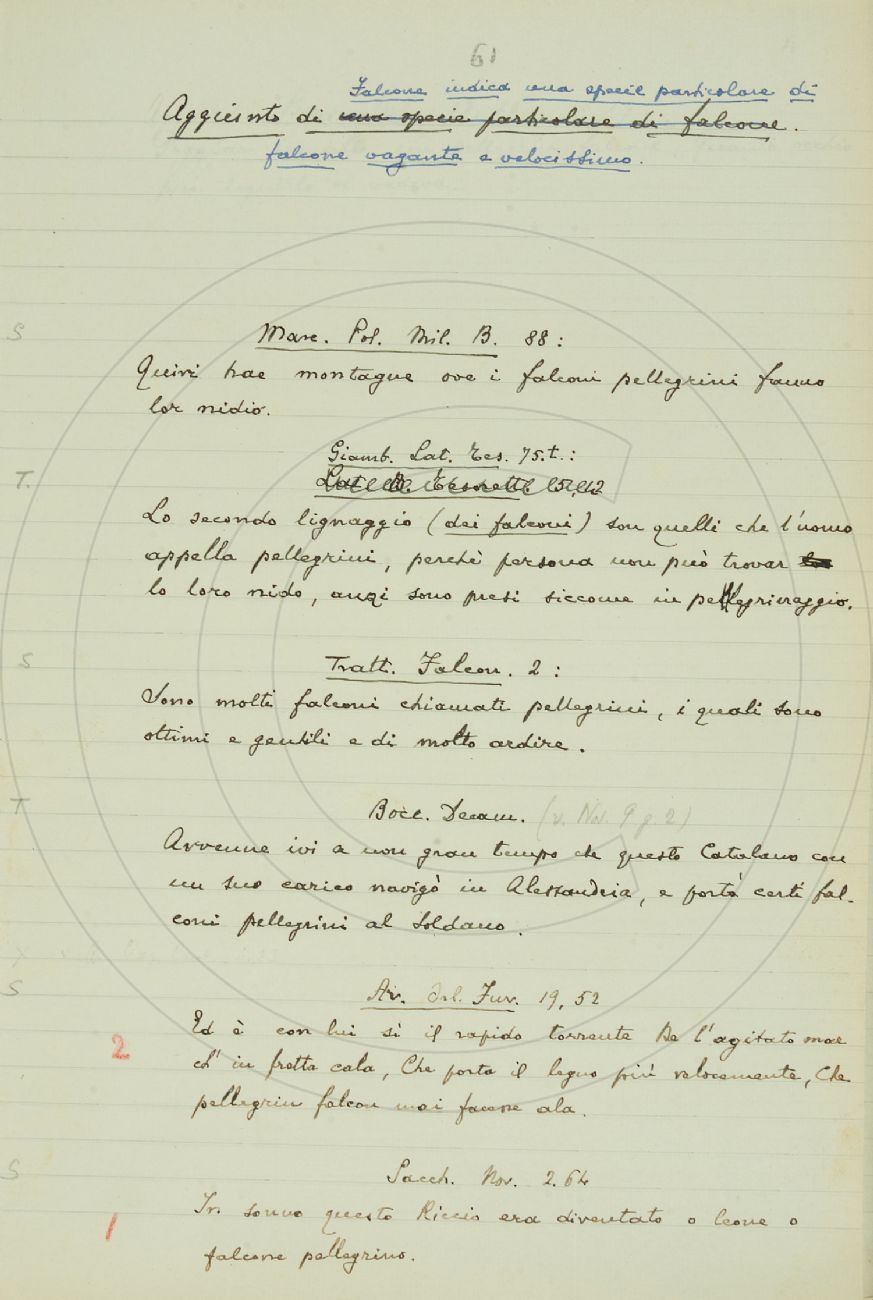 61
Falcone indica una specie particolare di
Aggiunto di una specie particolare di falcone.
falcone vagante e velocissimo.
S
Marc. Pol. Mil. B. 88:
Quivi hae montague ove i falconi pellegrini fanno
lor nidio.
Giamb. Lat. Tes. 75.t.:
T.
Lo secondo lignaggio (dei falconi) son quelli che l'uomo
appella pellegrini, perchè persona non può trovar
lo loro nido, anzi sono presi siccome in pellegrinaggio.
S
Tratt. Falcon. 2:
Sono molti falconi chiamati pellegrini, i quali sono
ottimi e gentili e di molto ardire.
T
Bocc. Decam. (v. Nov. 9 g. 2)
Avvenne ivi a non gran tempo che questo Catalano con
un suo carico navigò in Alessandria, e portò certi fal-
coni pellegrini al Soldano.
S
Ar. Orl. Fur. 19, 52
Ed è con lui sì il rapido torrente De l'agitato mar
2
ch' in fretta cala, Che porta il legno più velocemente, Che
pellegrin falcon mai facesse ala.
S
Sacch. Nov. 2.64
1
In sonno questo Riccio era diventato o leone o
falcone pellegrino.